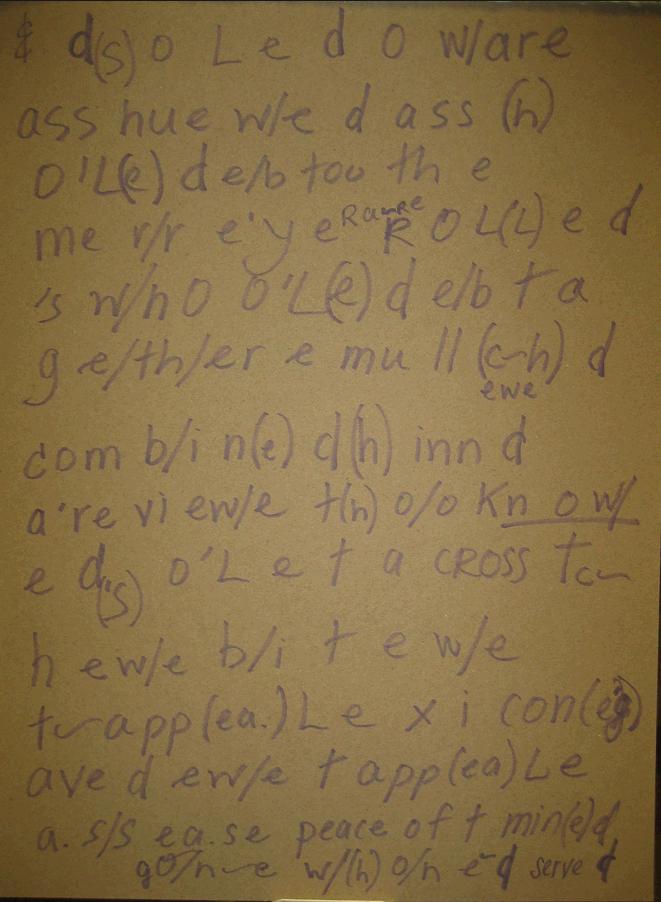 & d(s) o L e d o w/are
ass hue w/e d ass (h)
O'L(e) d e/b too th e
me r/r e'y e Raure R O L(L) e d
's w/h O O'L(e) d e/b t a
g e/th/er e mu ll (c~h) d
ewe
com b/i n(e) d(h) inn d
a're vi ew/e t(h) o/o Kn ow/
e d('s) o'L e t a CROSS tc~
h ew/e b/i t e w/e
t~app(ea.) L e x i con(eg)
ave d ew/e t app(ea) Le
a. s/s ea.se peace of t min(e)d
gO/n~e w/(h) o/n e-d serve d